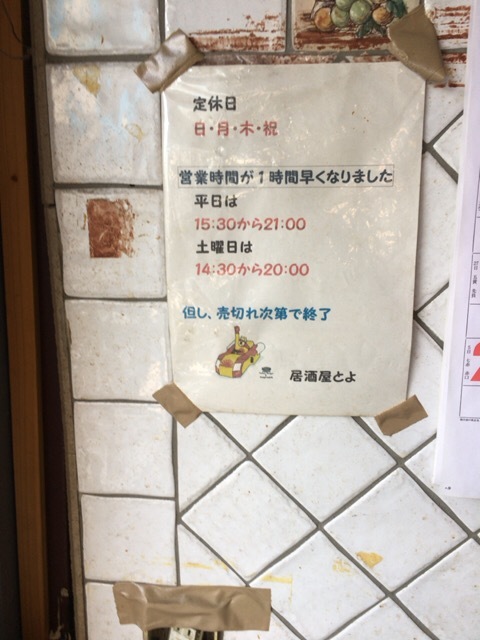 定休日
日・月・木・祝
営業時間が1時間早くなりました
平日は
15:30から21:00
土曜日は
14:30から20:00
但し、売切れ次第で終了
居酒屋とよ